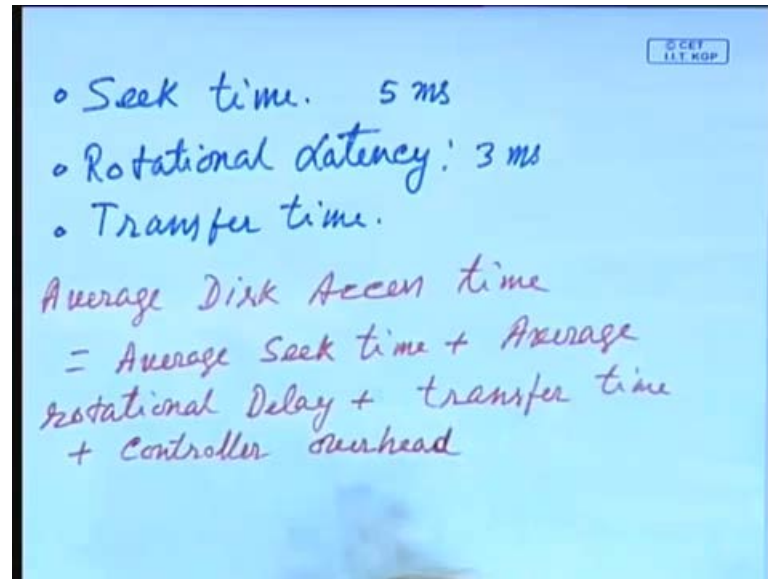 © CET
I.I.T. KGP
• Seek time. 5 ms
• Rotational Latency: 3 ms
• Transfer time.
Average Disk Access time
= Average Seek time + Average
rotational Delay + transfer time
+ Controller overhead